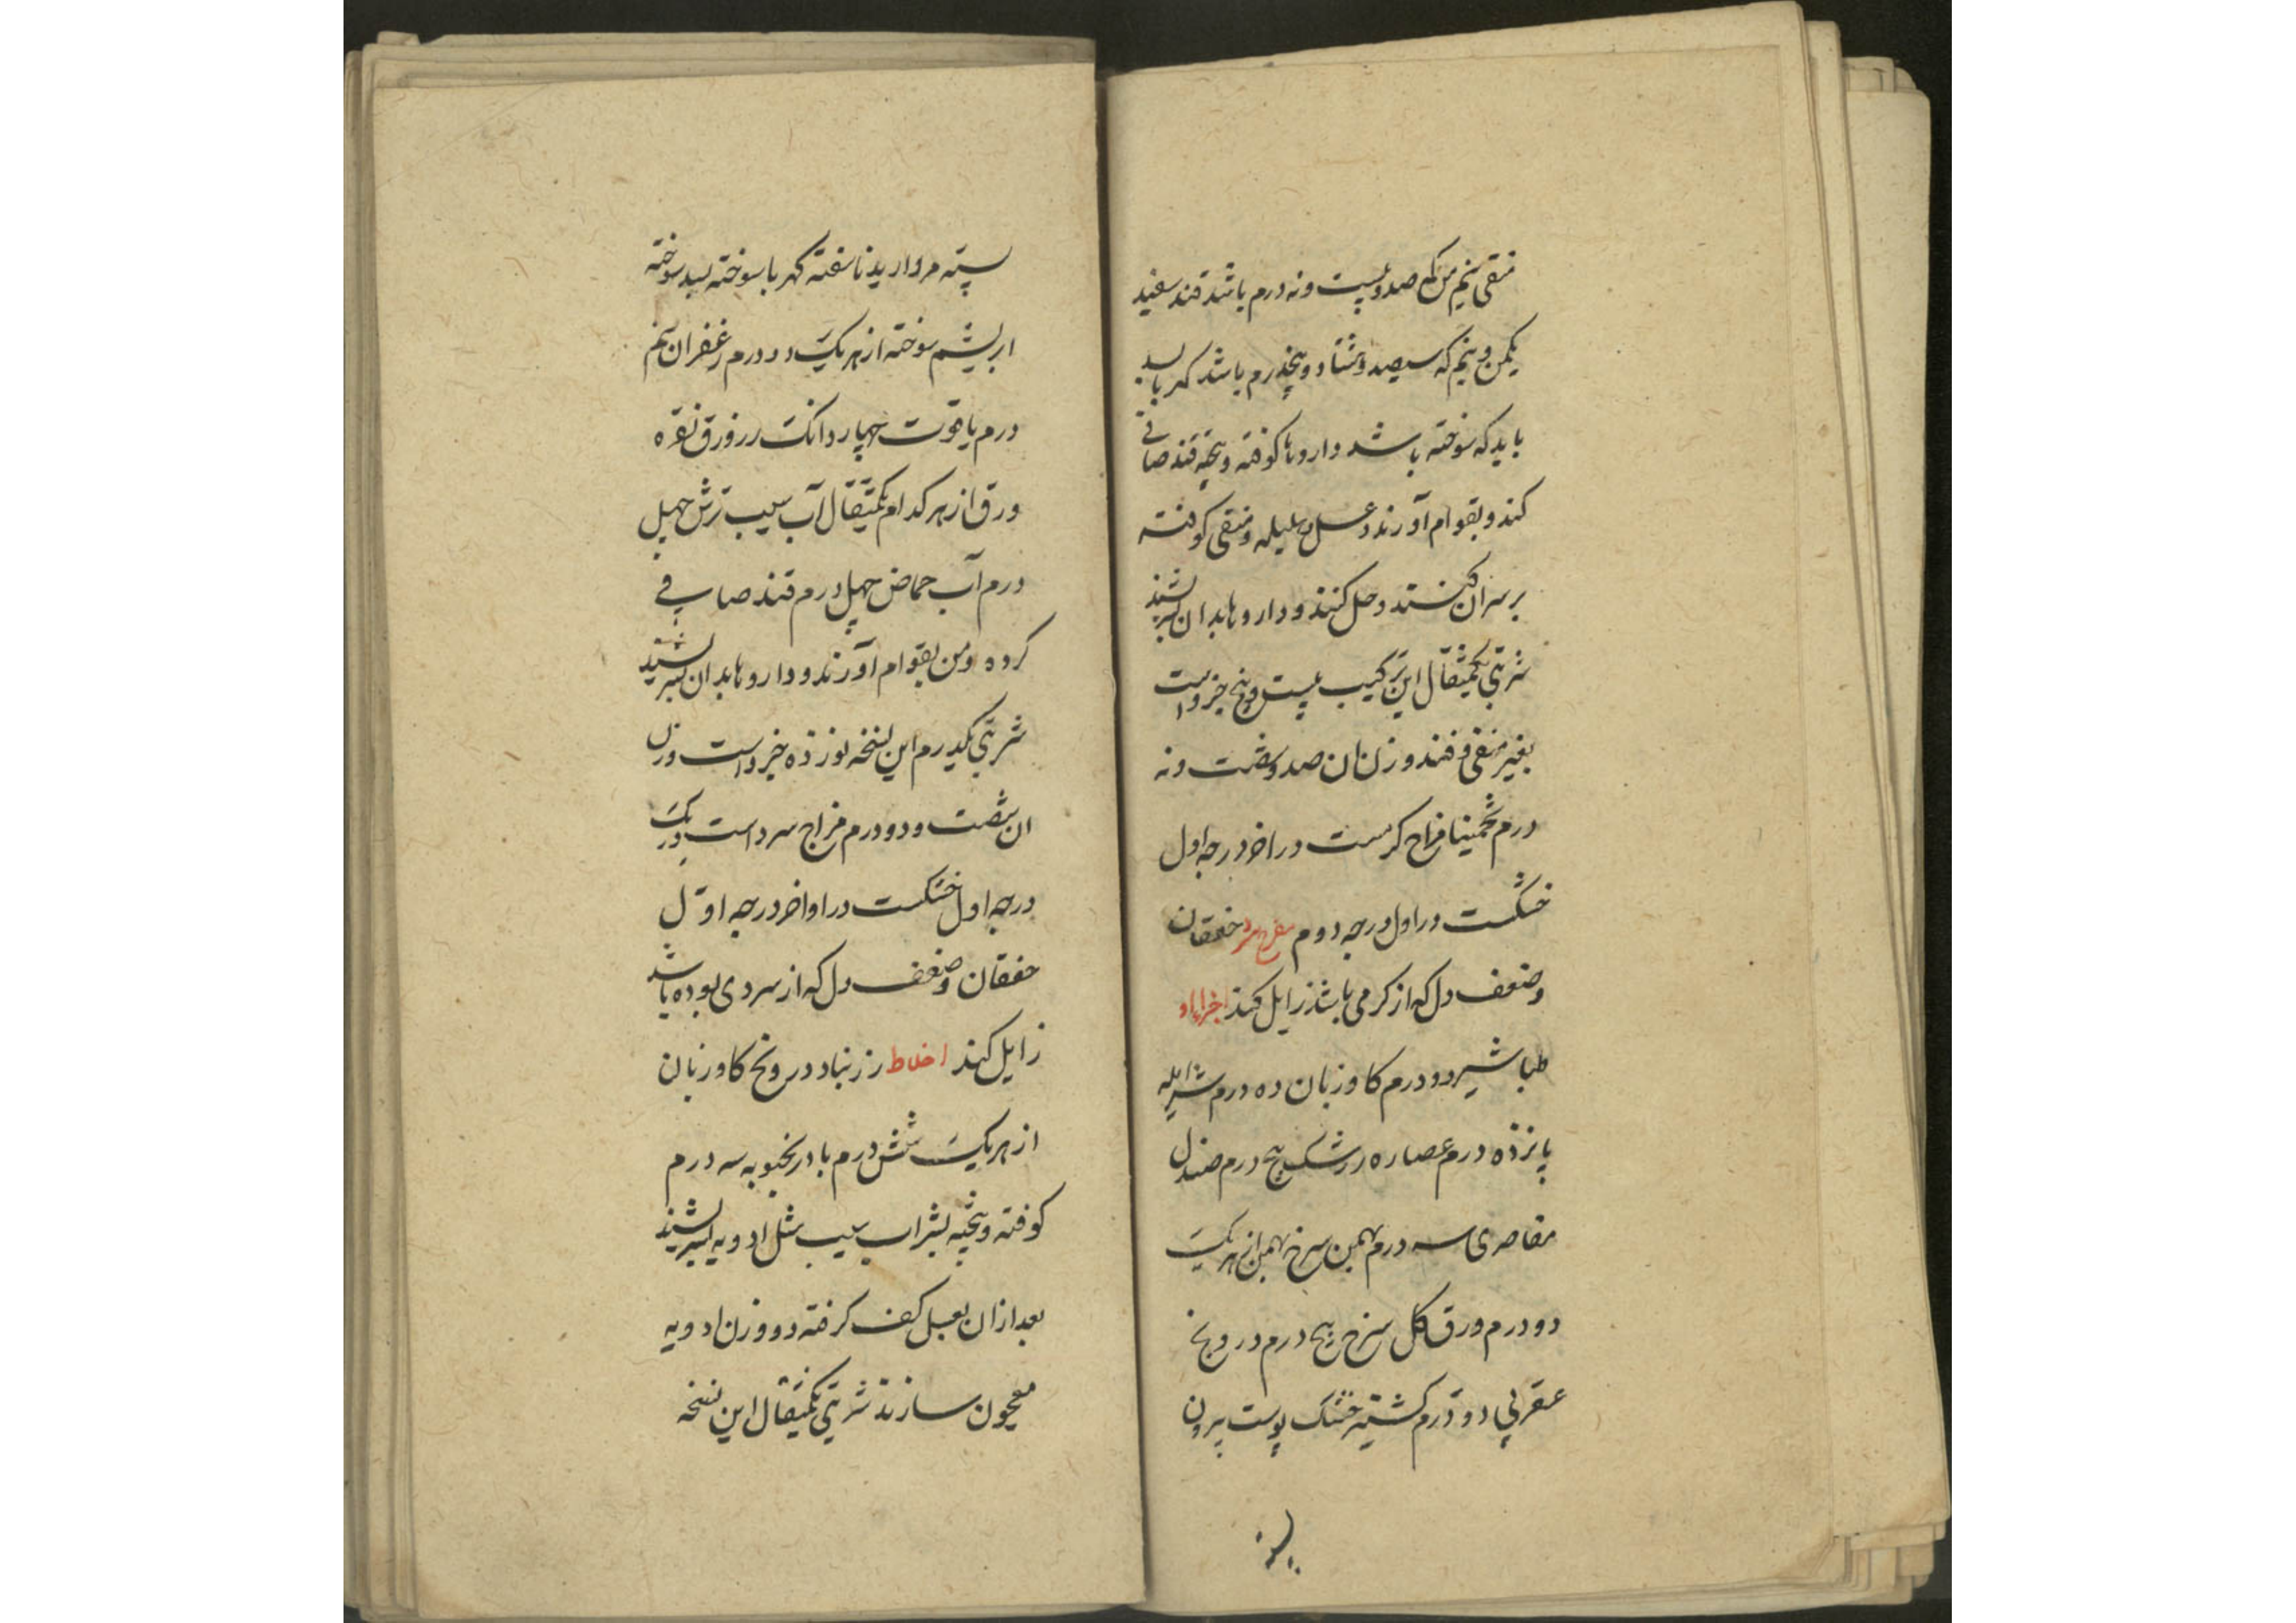 منقی نیم من که صد و بیست و نه درم باشد قند سفید
یکمن و نیم که سیصد و هشتاد و پنجدرم باشد کهربا بسد
باید که سوخته باشد داروها کوفته و بیخته قند صافی
کند و بقوام آورند و عسل هلیله و منقی کوفته
بر سر آن کنند و حل کنند و داروها بدان بسرشند
شربتی یکمثقال این ترکیب بیست و پنج جزو است
بغیر منقی و قند وزن ان صد و شصت و نه
درم تخمینا مزاج کرمست در اخر درجه اول
خشکست در اول درجه دوم مفرح سرد خفقان
و ضعف دل که از کرمی باشد زایل کند اجزاء او
طباشیر دو درم کاوزبان ده درم شیر امله
پانزده درم عصاره زرشک پنج درم صندل
مقاصری سه درم بهمن سرخ بهمن از هر یک
دو درم ورق کل سرخ پنج درم درونج
عقربی دو درم کشنیز خشک پوست بیرون
پسته
پسته مروارید ناسفته کهربا سوخته بسد سوخته
ابریشم سوخته از هر یک دو درم زعفران نیم
درم یاقوت چهار دانک زر ورق نقره
ورق از هر کدام یکمثقال آب سیب ترش چهل
درم آب حماض چهل درم قند صافی
کرده دو من بقوام آورند و داروها بدان بسرشند
شربتی یکدرم این نسخه نوزده جزو است وزن
ان شصت و دو درم مزاج سرد است در یک
درجه اول خشکست در اواخر درجه اول
خفقان و ضعف دل که از سردی بوده باشد
زایل کند اخلاط زرنباد درونج کاوزبان
از هر یک شش درم بادرنجبویه سه درم
کوفته و بیخته بشراب سیب مثل ادویه بسرشند
بعد ازان بعسل کف کرفته دو وزن ادویه
معجون سازند شربتی یکمثقال این نسخه